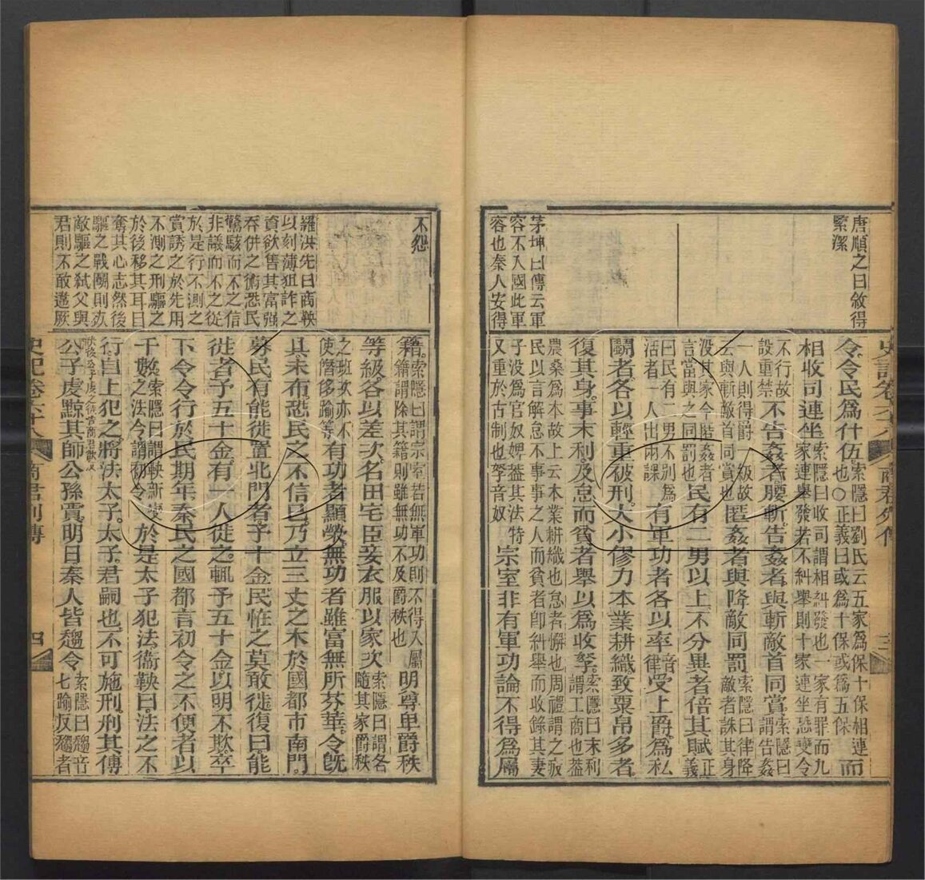 唐順之曰敘得
緊潔
茅坤曰傳云軍
容不入國此軍
容也秦人安得
史記卷六十八 商君列傳 三
令令民爲什伍
索隱曰劉氏云五家爲保十保相連
也○正義曰或爲十保或爲五保
而
相收司連坐
索隱曰收司謂相糾發也一家有罪而九
家連舉發若不糾舉則十家連坐恐變令
不行故
設重禁
不告姦者腰斬告姦者與斬敵首同賞
索隱曰
謂告姦
一人則得爵一級故
云與斬敵首同賞也
匿姦者與降敵同罰
索隱曰律降
敵者誅其身
沒其家今匿姦者
言當與之同罰也
民有二男以上不分異者倍其賦
正
義
曰民有二男不別爲
活者一人出兩課
有軍功者各以率
音
律
受上爵爲私
鬭者各以輕重被刑大小僇力本業耕織致粟帛多者
復其身事末利及怠而貧者舉以爲收孥
索隱曰末利
謂工商也蓋
農桑爲本故上云本業耕織也怠者懈也周禮謂之疲
民以言懈怠不事事之人而貧者卽糾舉而收錄其妻
子沒爲官奴婢蓋其法特
又重於古制也孥音奴
宗室非有軍功論不得爲屬
不怨
羅洪先曰商鞅
以刻薄狙詐之
資欲售其富強
吞併之術恐民
驚駭而不之信
非議而不之從
於是行不測之
賞誘之於先用
不測之刑驅之
於後移其耳目
奪其心志然後
驅之戰鬬則勍
敵驅之弒父與
君則不敢違厥
籍
索隱曰謂宗室若無軍功則不得入屬
籍謂除其籍則雖無功不及爵秩也
明尊卑爵秩
等級各以差次名田宅臣妾衣服以家次
索隱曰謂各
隨其家爵秩
之班次亦不
使僭侈踰等
有功者顯榮無功者雖富無所芬華令旣
具未布恐民之不信已乃立三丈之木於國都市南門
募民有能徙置北門者予十金民怪之莫敢徙復曰能
徙者予五十金有一人徙之輒予五十金以明不欺卒
下令令行於民期年秦民之國都言初令之不便者以
千數
索隱曰謂鞅新變
之法令謂初令
於是太子犯法衛鞅曰法之不
行自上犯之將法太子太子君嗣也不可施刑刑其傅
公子虔黥其師公孫賈明日秦人皆趨令
索隱曰趨音
七踰反趨者
史記卷六十八 商君列傳 四